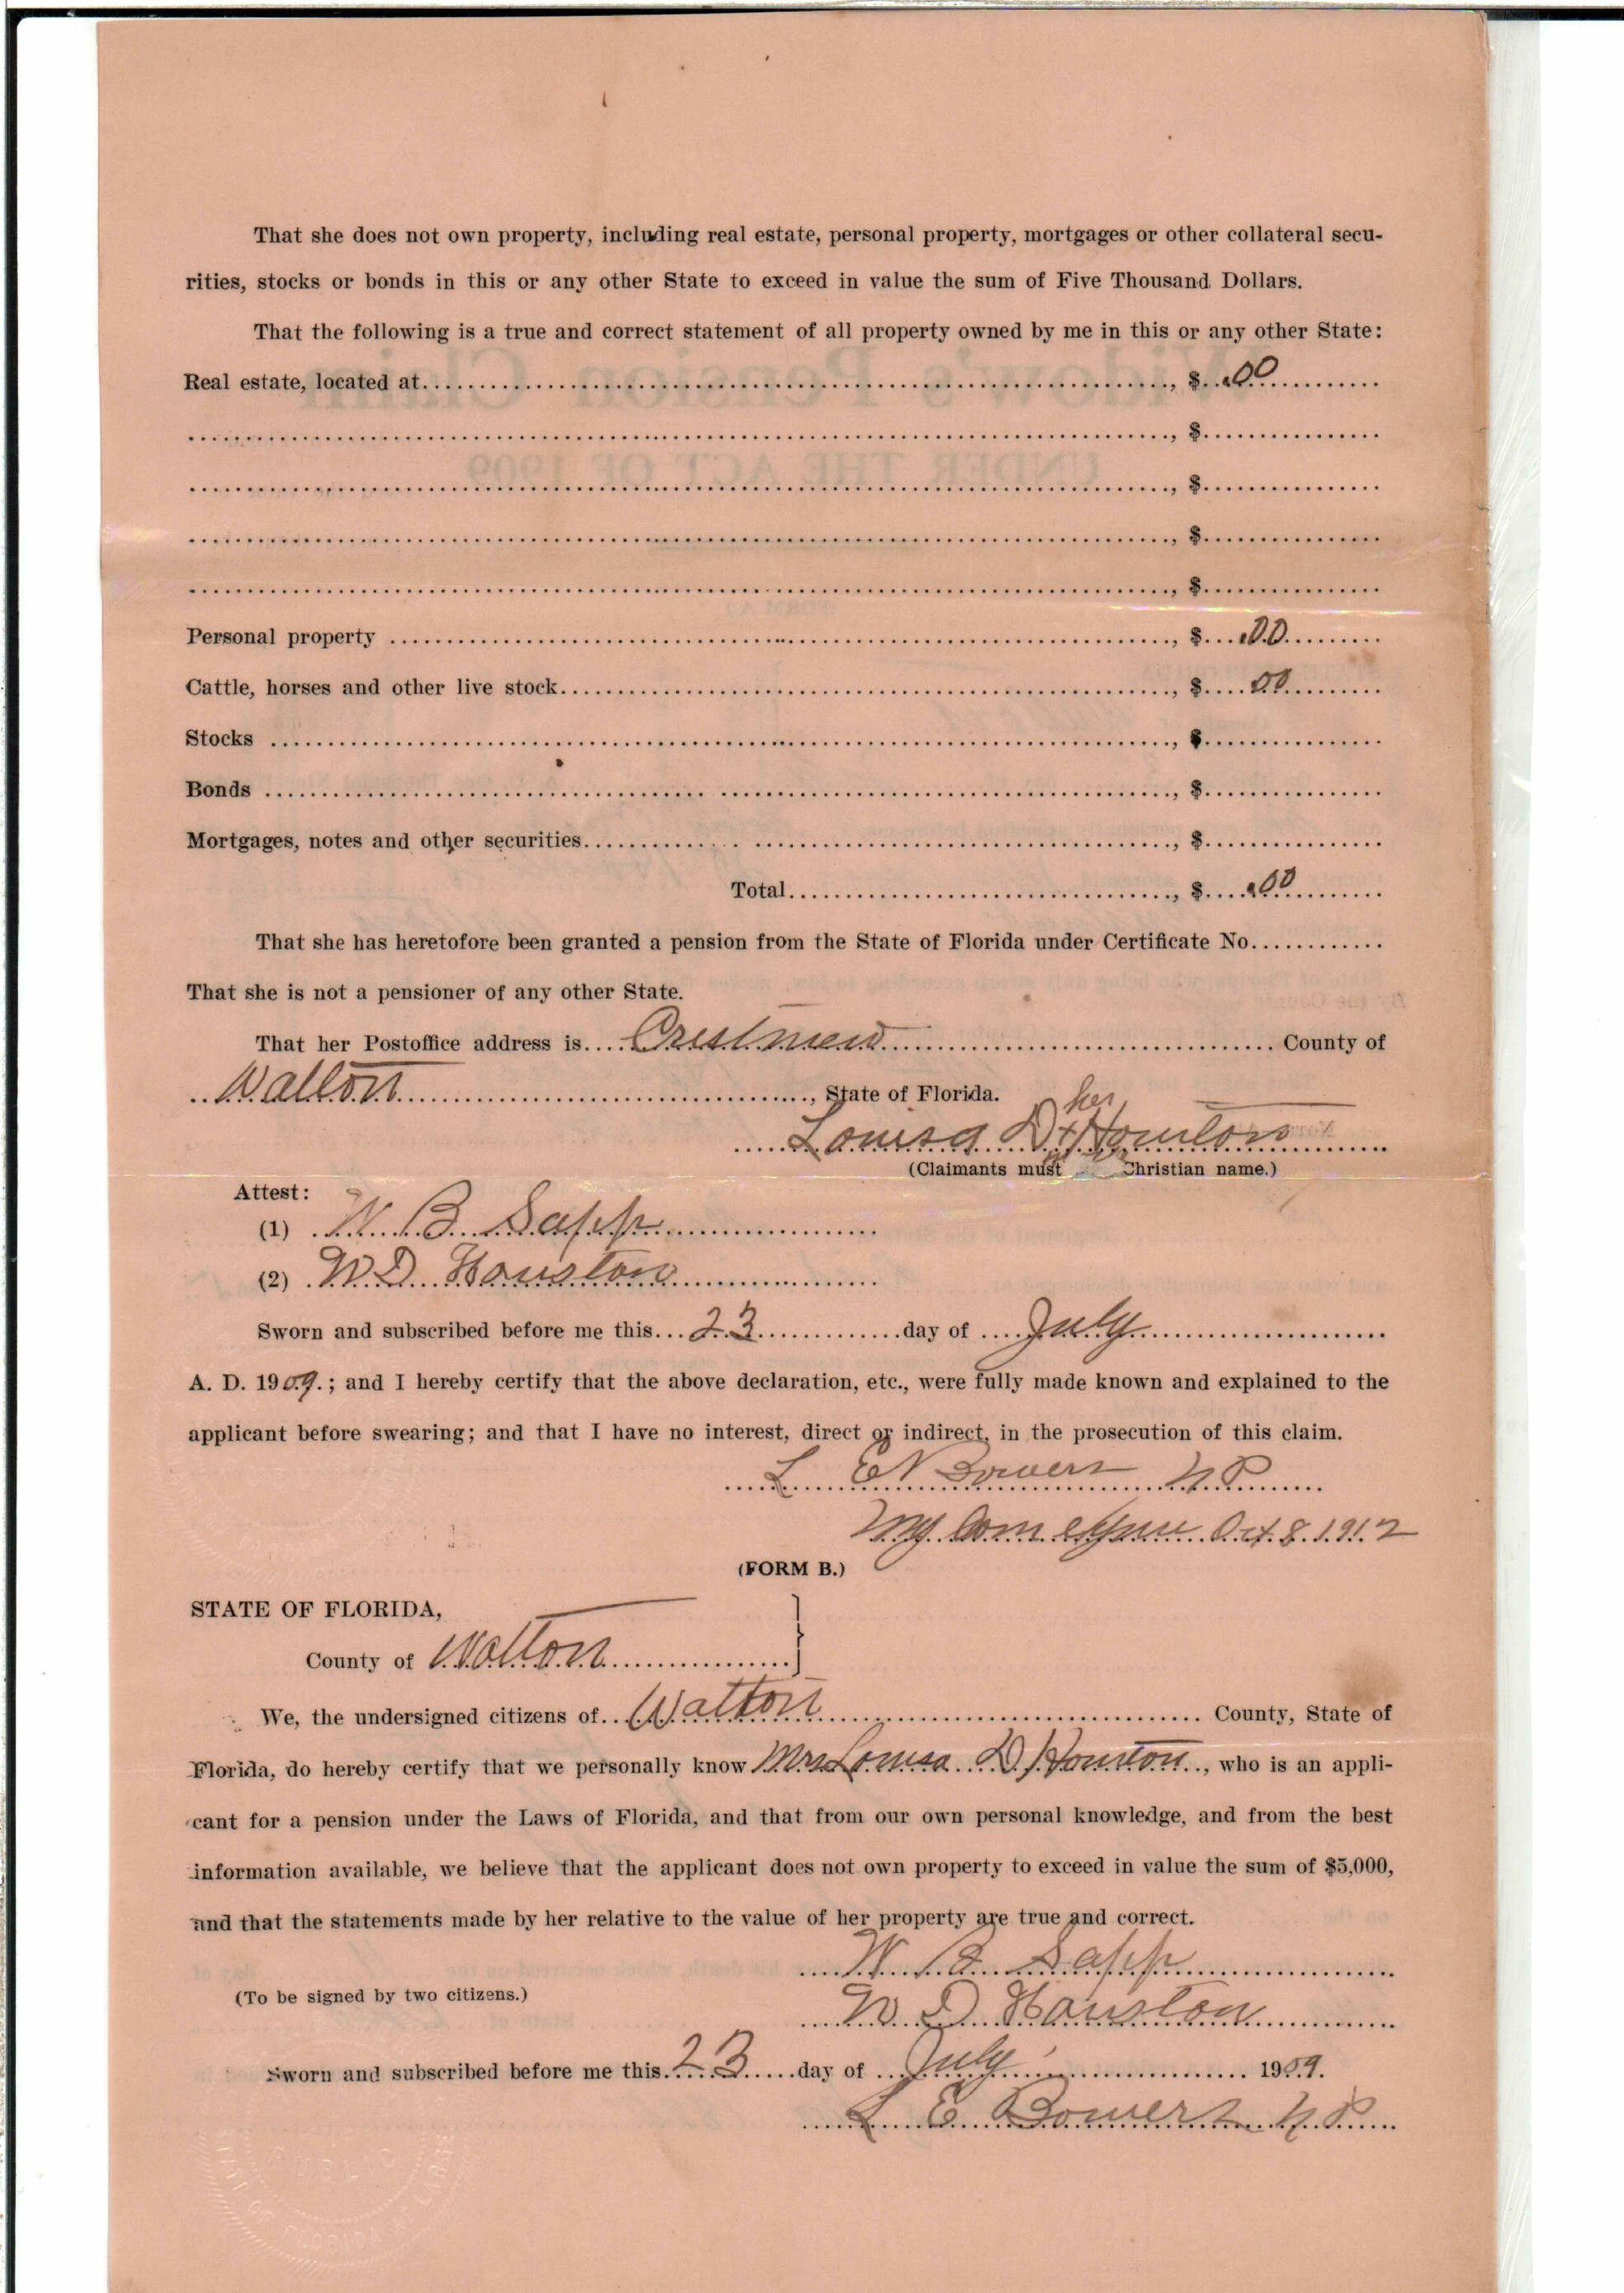 That she does not own property, including real estate, personal property, mortgages or other collateral secu-
rities, stocks or bonds in this or any other State to exceed in value the sum of Five Thousand Dollars.
That the following is a true and correct statement of all property owned by me in this or any other State:
Real estate, located at , $ .00
, $
, $
, $
, $
Personal property , $ .00
Cattle, horses and other live stock , $ 00
Stocks , $
Bonds , $
Mortgages, notes and other securities , $
Total , $ .00
That she has heretofore been granted a pension from the State of Florida under Certificate No.
That she is not a pensioner of any other State.
That her Postoffice address is Crestview County of
Walton , State of Florida.
her
Louisa D x Houston
(Claimants must Christian name.)
Attest:
(1) W. B. Sapp
(2) W. D. Houston
Sworn and subscribed before me this 23 day of July
A. D. 1909.; and I hereby certify that the above declaration, etc., were fully made known and explained to the
applicant before swearing; and that I have no interest, direct or indirect, in the prosecution of this claim.
L E Bowers N P
My Com Oct. 8. 1912
(FORM B.)
STATE OF FLORIDA,
County of Walton
We, the undersigned citizens of Walton County, State of
Florida, do hereby certify that we personally know Mrs Louisa D. Houston , who is an appli-
cant for a pension under the Laws of Florida, and that from our own personal knowledge, and from the best
information available, we believe that the applicant does not own property to exceed in value the sum of $5,000,
and that the statements made by her relative to the value of her property are true and correct.
W. B. Sapp
(To be signed by two citizens.)
W. D. Houston
Sworn and subscribed before me this 23 day of July 1909.
L E Bowers N P